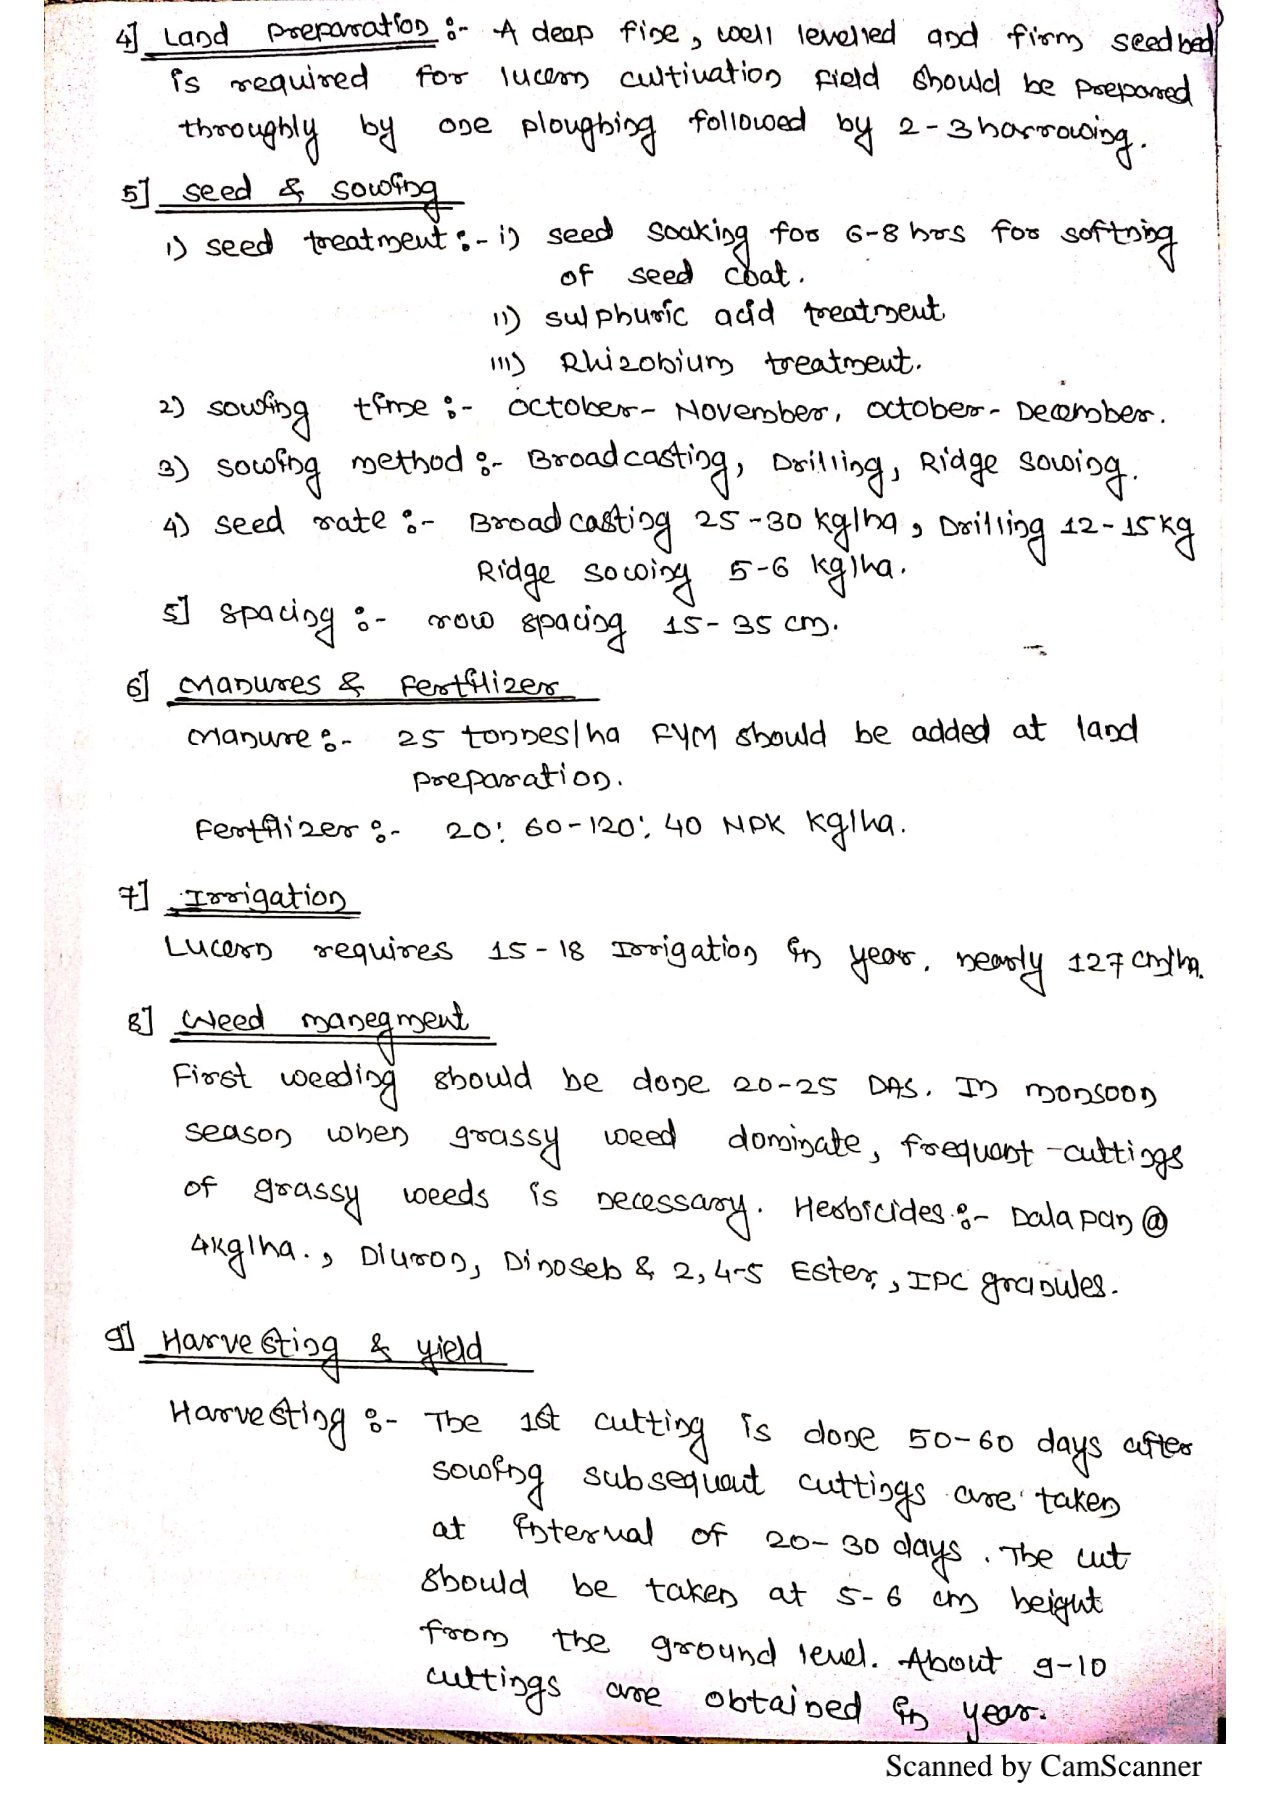 4] Land preparation :- A deep fine, well levelled and firm seedbed
is required for lucern cultivation field should be prepared
throughly by one ploughing followed by 2-3 harrowing.
5] seed & sowing
1) seed treatment :- i) seed soaking for 6-8 hrs for softning
of seed coat.
ii) sulphuric acid treatment
iii) Rhizobium treatment.
2) sowing time :- october- November, october- December.
3) sowing method :- Broadcasting, Drilling, Ridge sowing.
4) seed rate :- Broadcasting 25-30 kg/ha, Drilling 12-15 kg
Ridge sowing 5-6 kg/ha.
5] spacing :- row spacing 15-35 cm.
6] Manures & Fertilizer
Manure :- 25 tonnes/ha FYM should be added at land
preparation.
Fertilizer :- 20: 60-120: 40 NPK kg/ha.
7] Irrigation
Lucern requires 15-18 Irrigation in year. nearly 127 cm/ha.
8] Weed manegment
First weeding should be done 20-25 DAS. In monsoon
season when grassy weed dominate, frequent -cuttings
of grassy weeds is necessary. Herbicides :- Dalapan @
4kg/ha., Diuron, Dinoseb & 2,4-5 Ester, IPC granules.
9] Harvesting & yield
Harvesting :- The 1st cutting is done 50-60 days after
sowing subsequent cuttings are taken
at interval of 20-30 days. The cut
should be taken at 5-6 cm height
from the ground level. About 9-10
cuttings are obtained in year.
Scanned by CamScanner